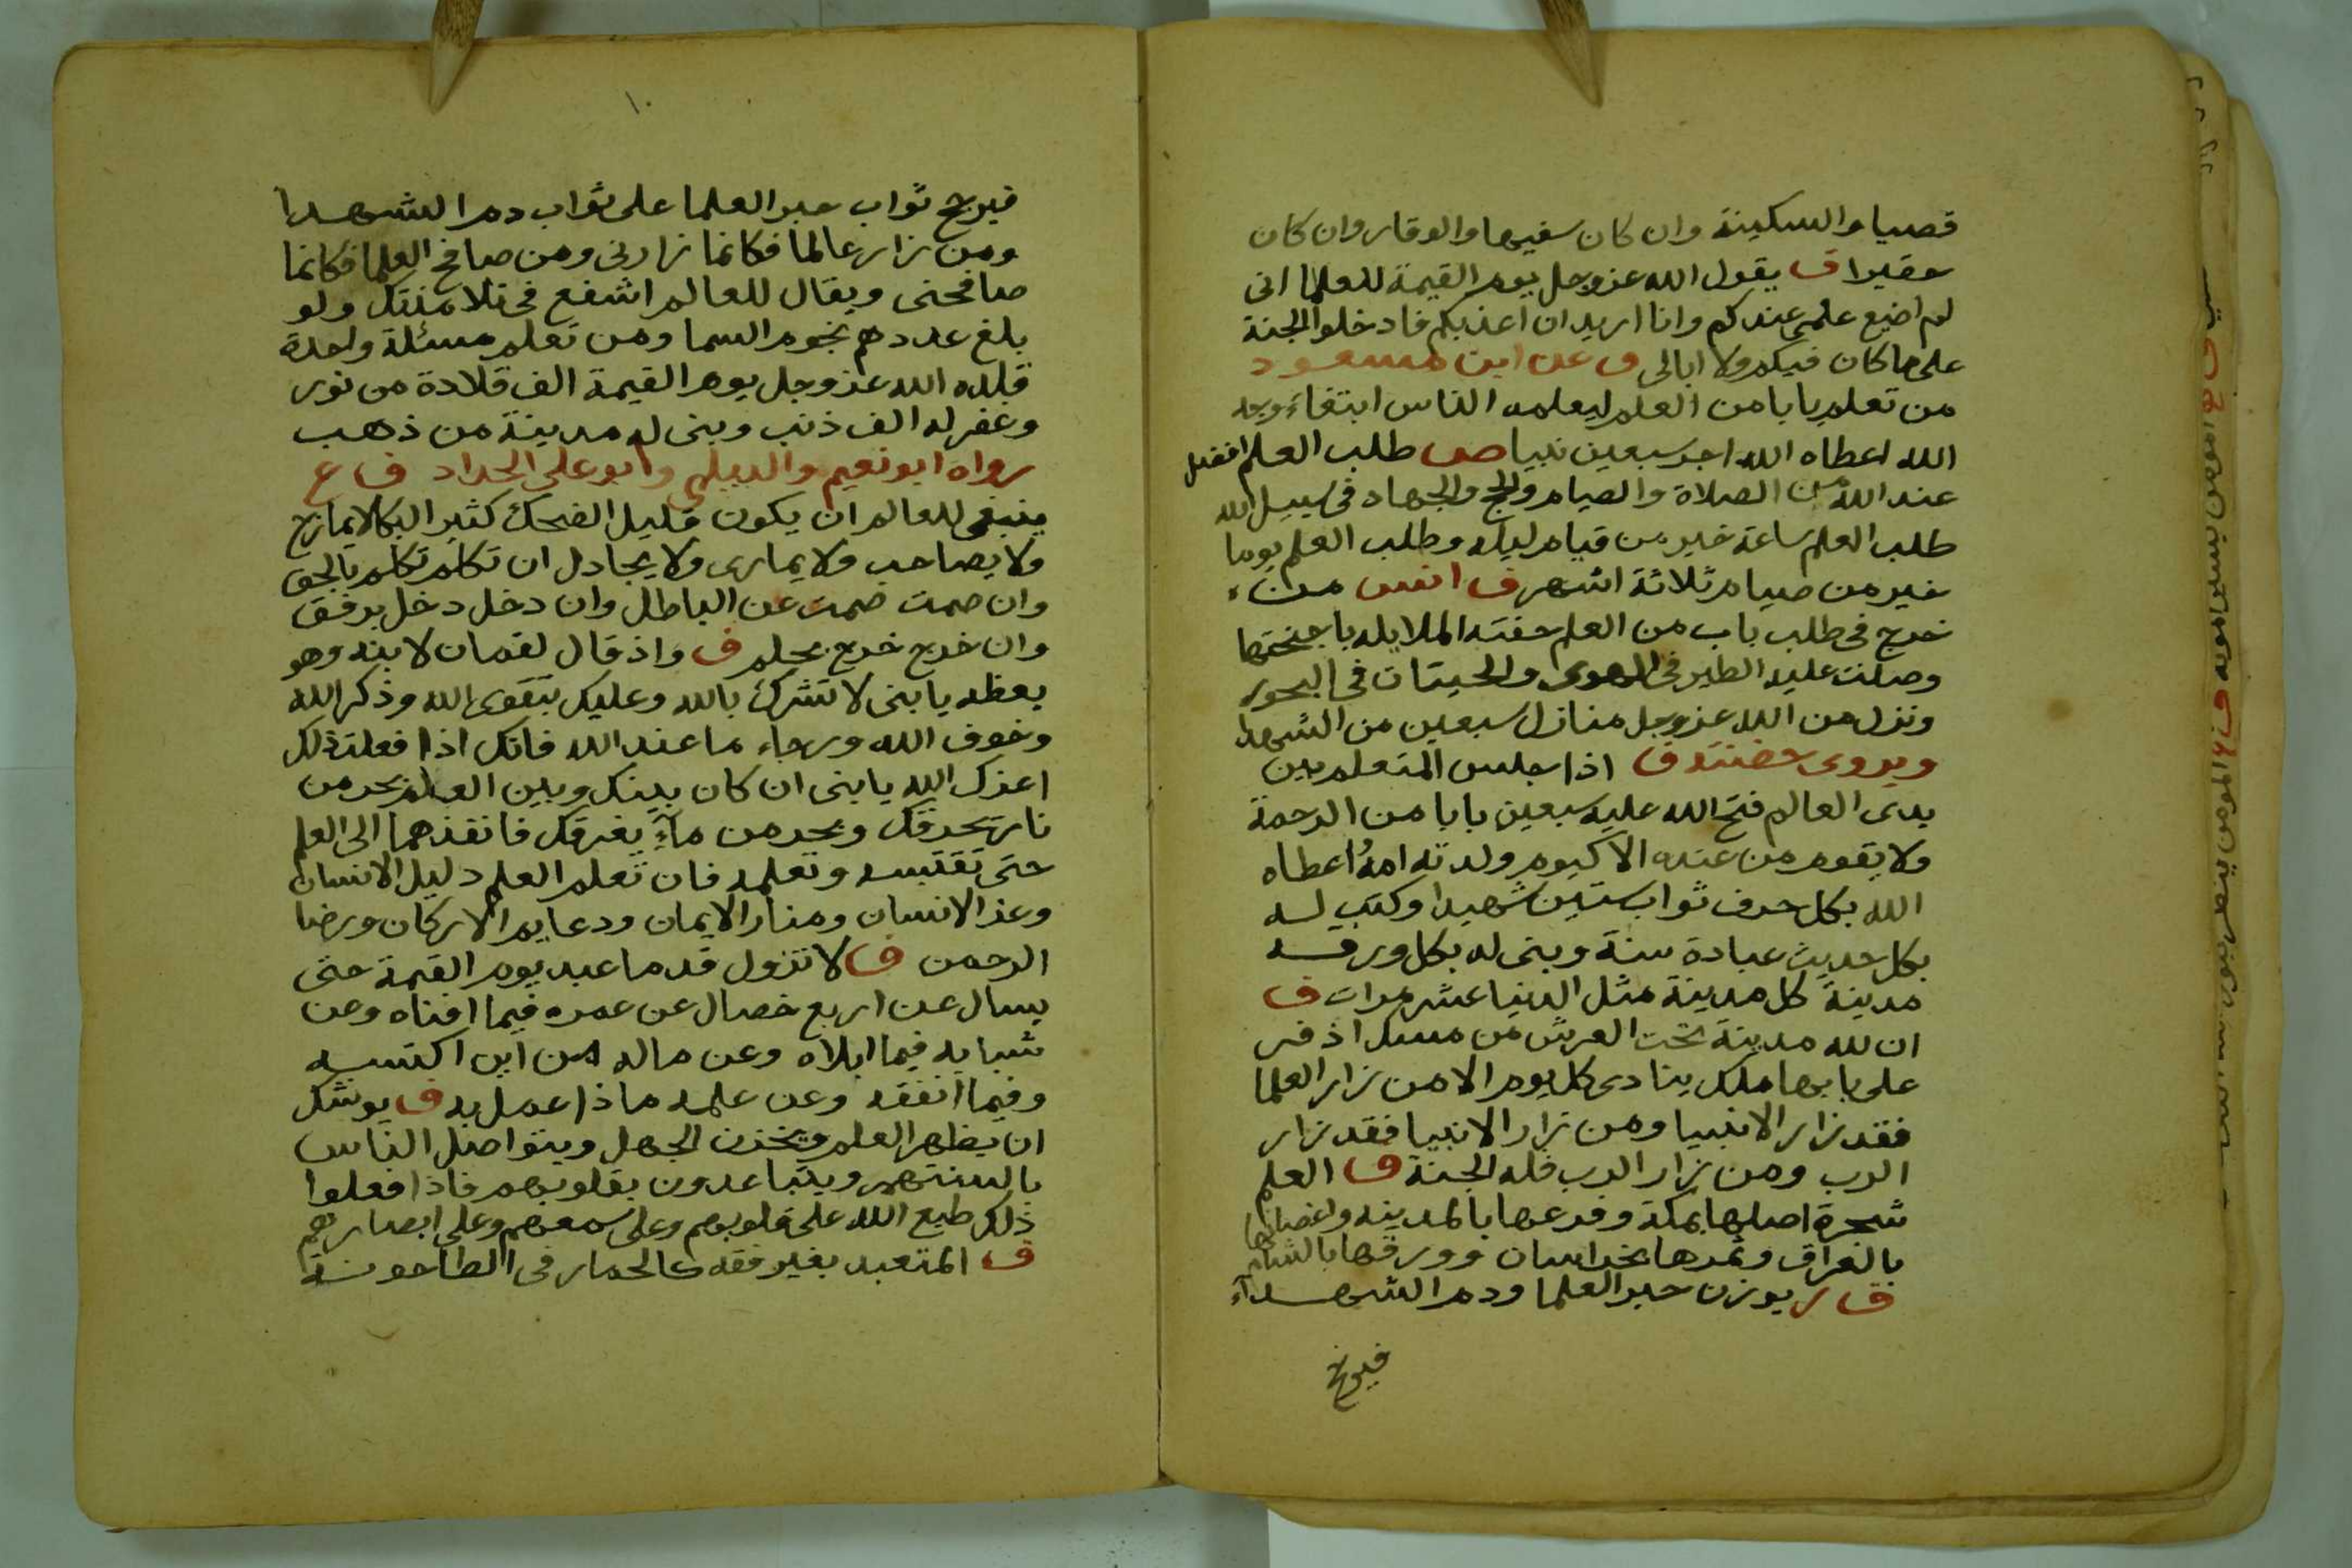 قصيا والسكينة وان كان سفيها والوقار وان كان
حقيرا ف يقول الله عز وجل يوم القيمة للعلما انى
لم اضيع علمى عندكم وانا اريد ان اعذبكم فادخلوا الجنة
على ما كان فيكم ولا ابالى ف عن ابن مسعود
من تعلم بابا من العلم ليعلمه الناس ابتغاء وجه
الله اعطاه الله اجر سبعين نبيا ص طلب العلم افضل
عند الله من الصلاة والصيام والحج والجهاد فى سبيل الله
طلب العلم ساعة خير من قيام ليلة وطلب العلم يوما
خير من صيام ثلاثة اشهر ف انس من
خرج فى طلب باب من العلم حفته الملايكه باجنحتها
وصلت عليه الطير فى الهوى والحيتان فى البحور
ونزل من الله عز وجل منازل سبعين من الشهدا
ويروى حضنته ف اذا جلس المتعلم بين
يدى العالم فتح الله عليه سبعين بابا من الرحمة
ولا يقوم من عنده الا كيوم ولدته امهُ اعطاه
الله بكل حرف ثواب ستين شهيدا وكتب له
بكل حديث عبادة سنة وبنى له بكل ورقه
مدينة كل مدينة مثل الدنيا عشر مرات ف
ان لله مدينة تحت العرش من مسك اذفر
على بابها ملك ينادى كل يوم الا من زار العلما
فقد زار الانبيا ومن زار الانبيا فقد زار
الرب ومن زار الرب فله الجنة ف العلم
شجرة اصلها بمكة وفرعها بالمدينه واغصانها
بالعراق وثمرها بخراسان وورقها بالشام
ف ر يوزن حبر العلما ودم الشهدآء
فيرجح
١٠
فيرجح ثواب حبر العلما على ثواب دم الشهدا
ومن زار عالما فكانما زارنى ومن صافح العلما فكانما
صافحنى ويقال للعالم اشفع فى تلامذتك ولو
بلغ عددهم نجوم السما ومن تعلم مسئلة واحدة
قلده الله عز وجل يوم القيمة الف قلادة من نور
وغفر له الف ذنب وبنى له مدينة من ذهب
رواه ابو نعيم والديلمى وابو على الحداد ف ع
ينبغى للعالم ان يكون قليل الضحك كثير البكا لا يمازح
ولا يصاحب ولا يمارى ولا يجادل ان تكلم تكلم بالحق
وان صمت صمت عن الباطل وان دخل دخل برفق
وان خرج خرج بحلم ف واذ قال لقمان لابنه وهو
يعظه يا بنى لا تشرك بالله وعليك بتقوى الله وذكر الله
وخوف الله ورجاء ما عند الله فانك اذا فعلت ذلك
اعزك الله يا بنى ان كان بينك وبين العلم بحر من
نار يحرقك وبحر من مآء يغرقك فانفذهما الى العلم
حتى تقتبسه وتعلمه فان تعلم العلم دليل الانسان
وعز الانسان ومنار الايمان ودعايم الاركان ورضا
الرحمن ف لا تزول قدما عبد يوم القيمة حتى
يسال عن اربع خصال عن عمره فيما افناه وعن
شبابه فيما ابلاه وعن ماله من اين اكتسبه
وفيما انفقه وعن علمه ماذا عمل به ف يوشك
ان يظهر العلم ويخزن الجهل ويتواصل الناس
بالسنتهم ويتباعدون بقلوبهم فاذا فعلوا
ذلك طبع الله على قلوبهم وعلى سمعهم وعلى ابصارهم
ف المتعبد بغير فقه كالحمار فى الطاحونة